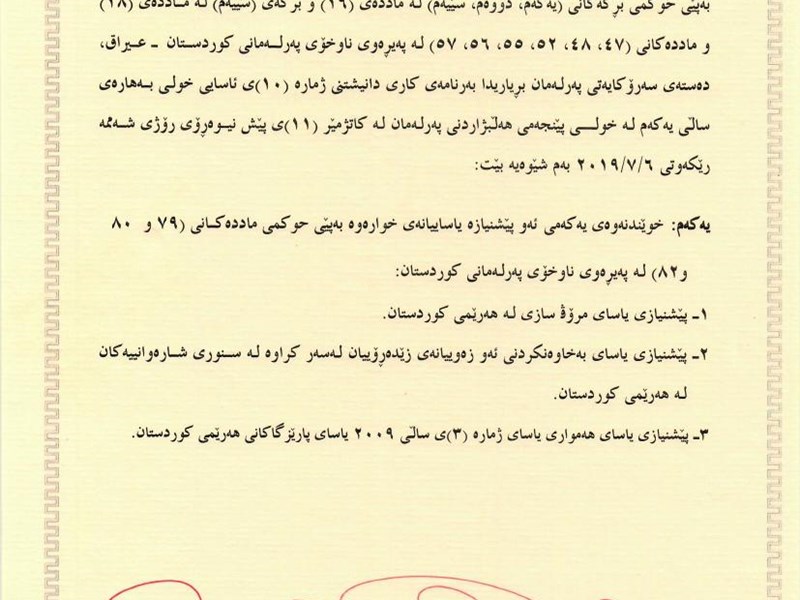 بەپێی حوکمی بڕگەکانی (یەکەم، دووەم، سێیەم) لە ماددەی (١٦) و بڕگەی (سێیەم) لە ماددەی (١٨)
و ماددەکانی (٤٧، ٤٨، ٥٢، ٥٥، ٥٦، ٥٧) لە پەیڕەوی ناوخۆی پەرلەمانی کوردستان ـ عیراق،
دەستەی سەرۆکایەتی پەرلەمان بڕیاریدا بەرنامەی کاری دانیشتنی ژمارە (١٠)ی ئاسایی خولی بەهارەی
ساڵی یەکەم لە خولی پێنجەمی هەڵبژاردنی پەرلەمان لە کاتژمێر (١١)ی پێش نیوەڕۆی رۆژی شەممە
رێکەوتی ٢٠١٩/٧/٦ بەم شێوەیە بێت:
یەکەم: خوێندنەوەی یەکەمی ئەو پێشنیازە یاساییانەی خوارەوە بەپێی حوکمی ماددەکانی (٧٩ و ٨٠
و٨٢) لە پەیڕەوی ناوخۆی پەرلەمانی کوردستان:
١ـ پێشنیازی یاسای مرۆڤ سازی لە هەرێمی کوردستان.
٢ـ پێشنیازی یاسای بەخاوەنکردنی ئەو زەوییانەی زێدەڕۆییان لەسەر کراوە لە سنوری شارەوانییەکان
لە هەرێمی کوردستان.
٣ـ پێشنیازی یاسای هەمواری یاسای ژمارە (٣)ی ساڵی ٢٠٠٩ یاسای پارێزگاکانی هەرێمی کوردستان.